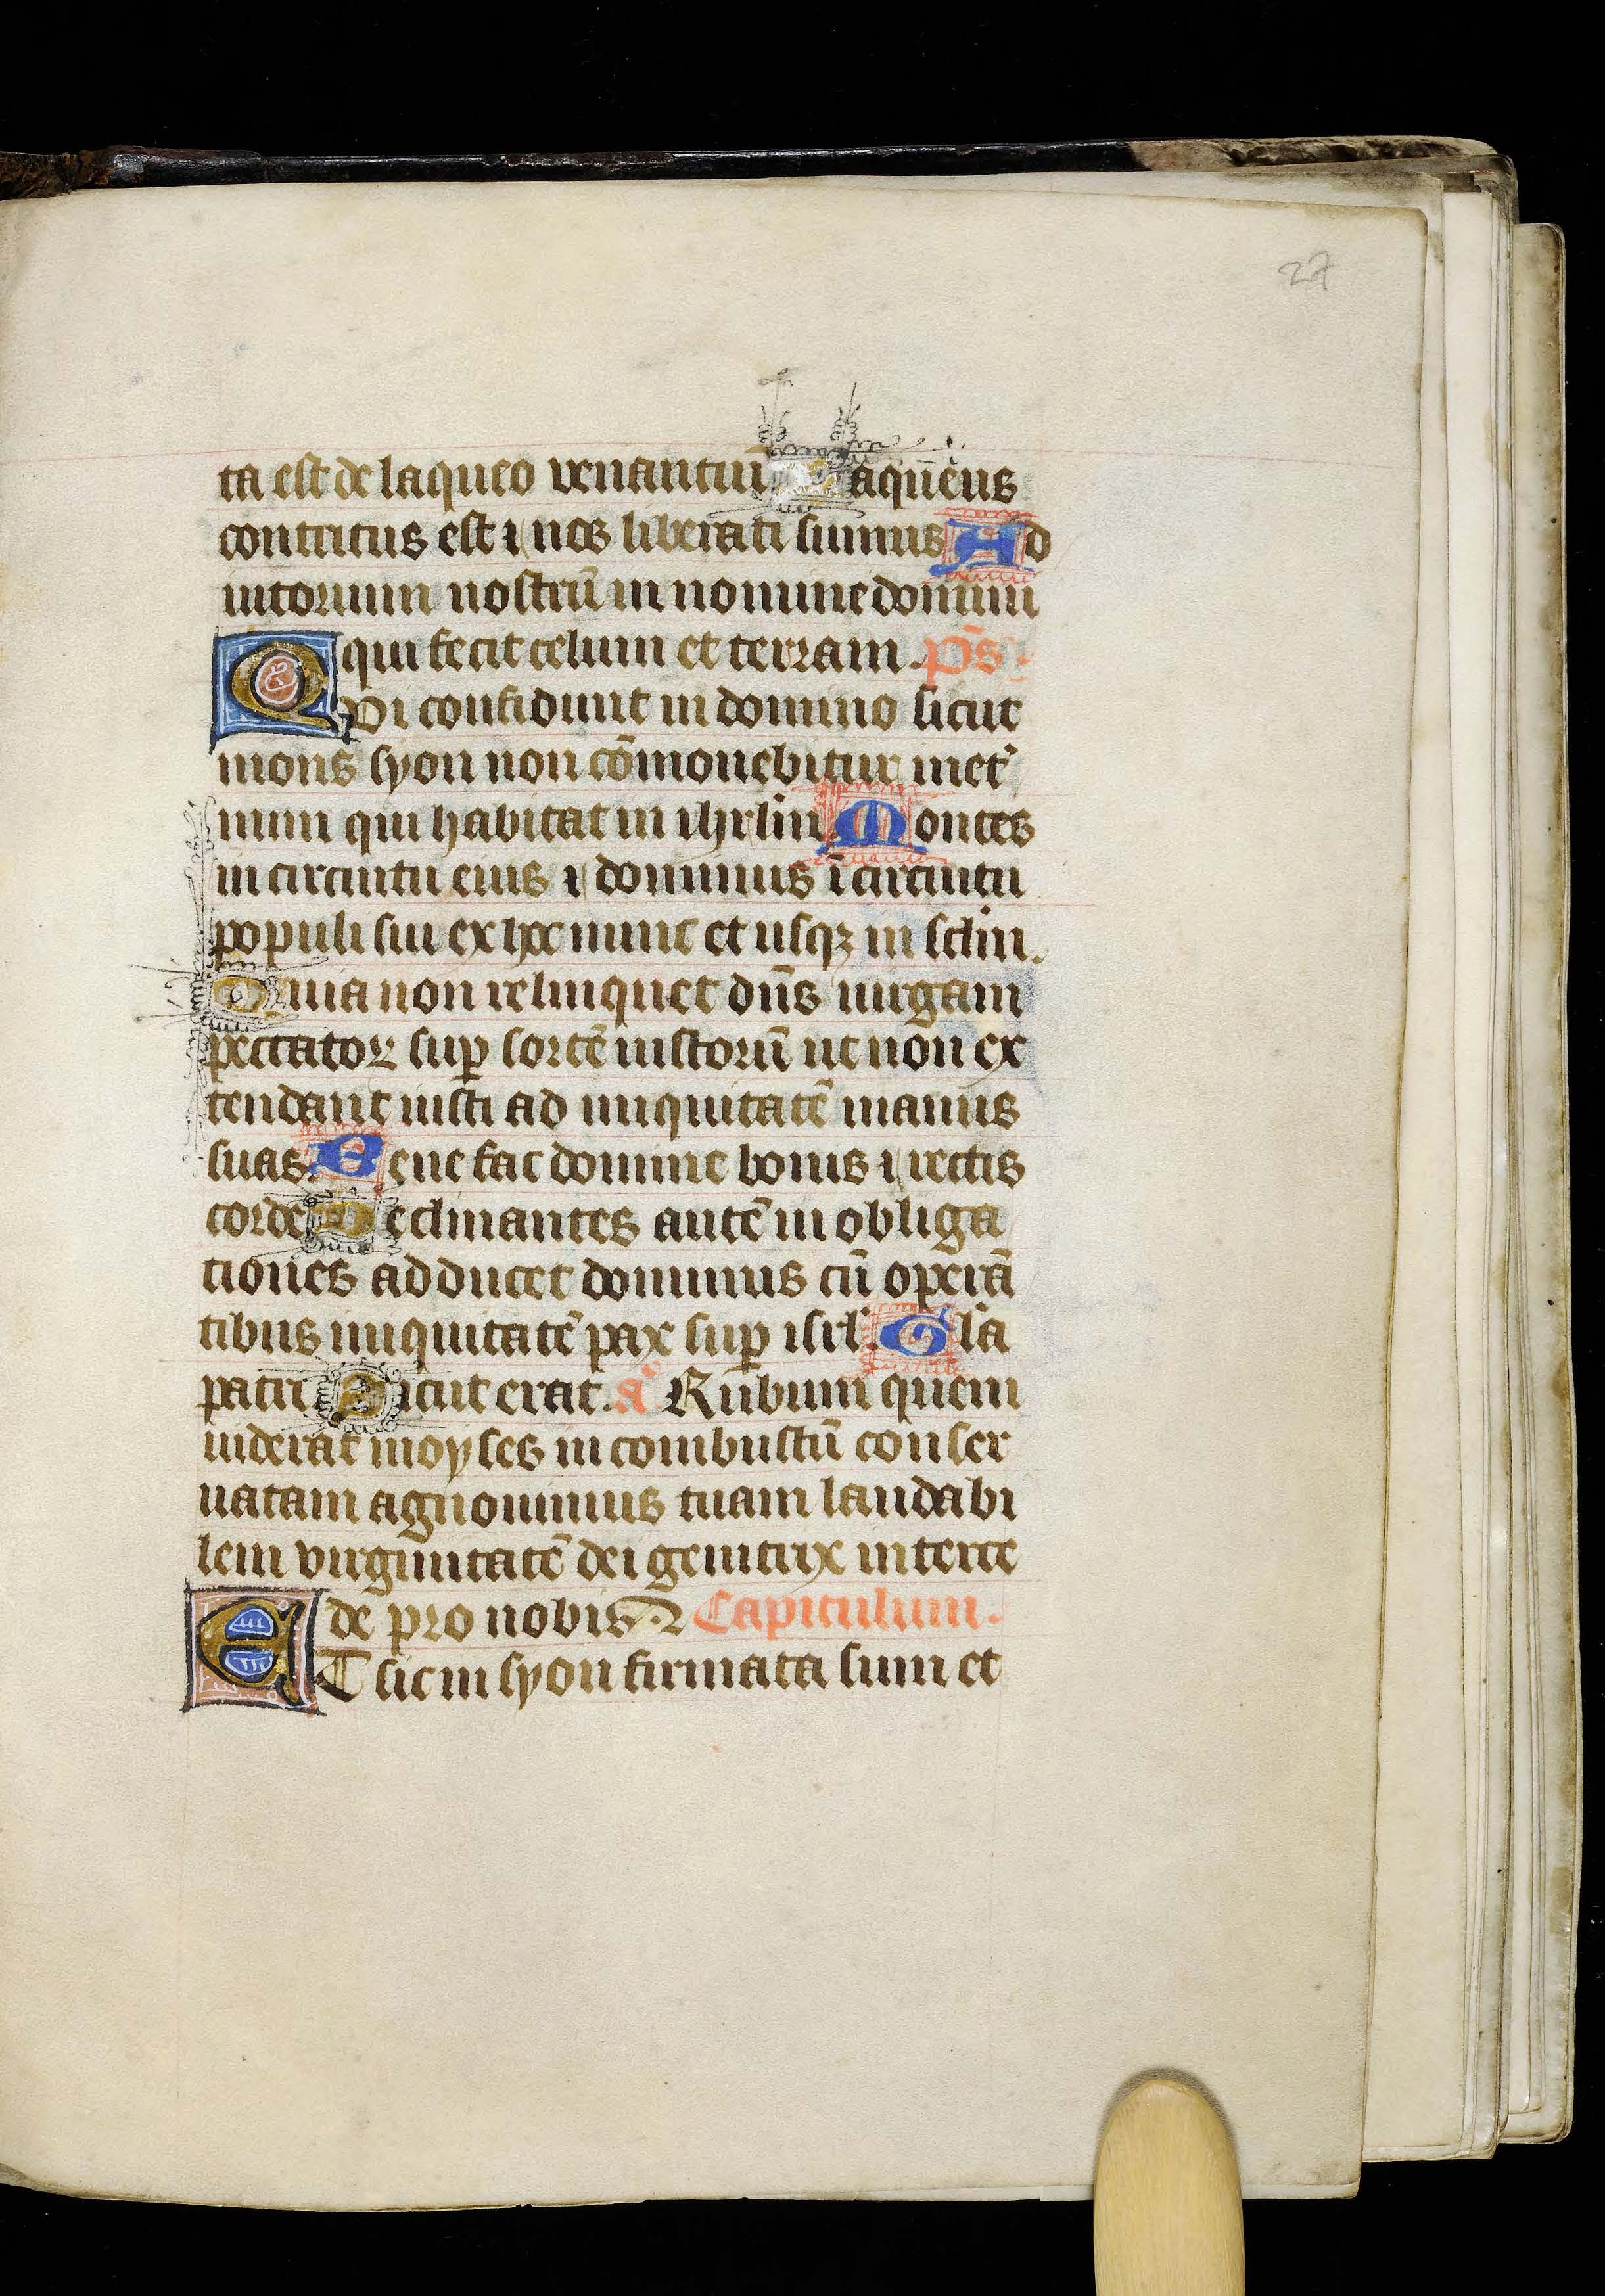 27
ta est de laqueo venantiū Laqueus
contritus est ⁊ nos liberati sumus Ad
iutorium nostrū in nomine domini
qui fecit celum et terram. p̄s.
QVi confidunt in domino sicut
mons syon non cōmouebitur in et̾
num qui habitat in ihrl̄m Montes
in circuitu eius ⁊ dominus ī circuitu
populi sui ex hoc nunc et usqꝫ in sclm̄.
Quia non relinquet dn̄s uirgam
peccatoꝝ suꝑ sortē iustorū ut non ex
tendant iusti ad iniquitatē manus
suas. Bene fac domine bonis ⁊ rectis
corde Declinantes autē in obliga
tiones adducet dominus cū operā
tibus iniquitatē pax suꝑ isrl̄. Glā
patri Sicut erat. a͞ Rubum quem
uiderat moyses incombustū conser
uatam agnouimus tuam laudabi
lem virginitatē dei genitrix interce
de pro nobis. Capitulum.
ET sic in syon firmata sum et